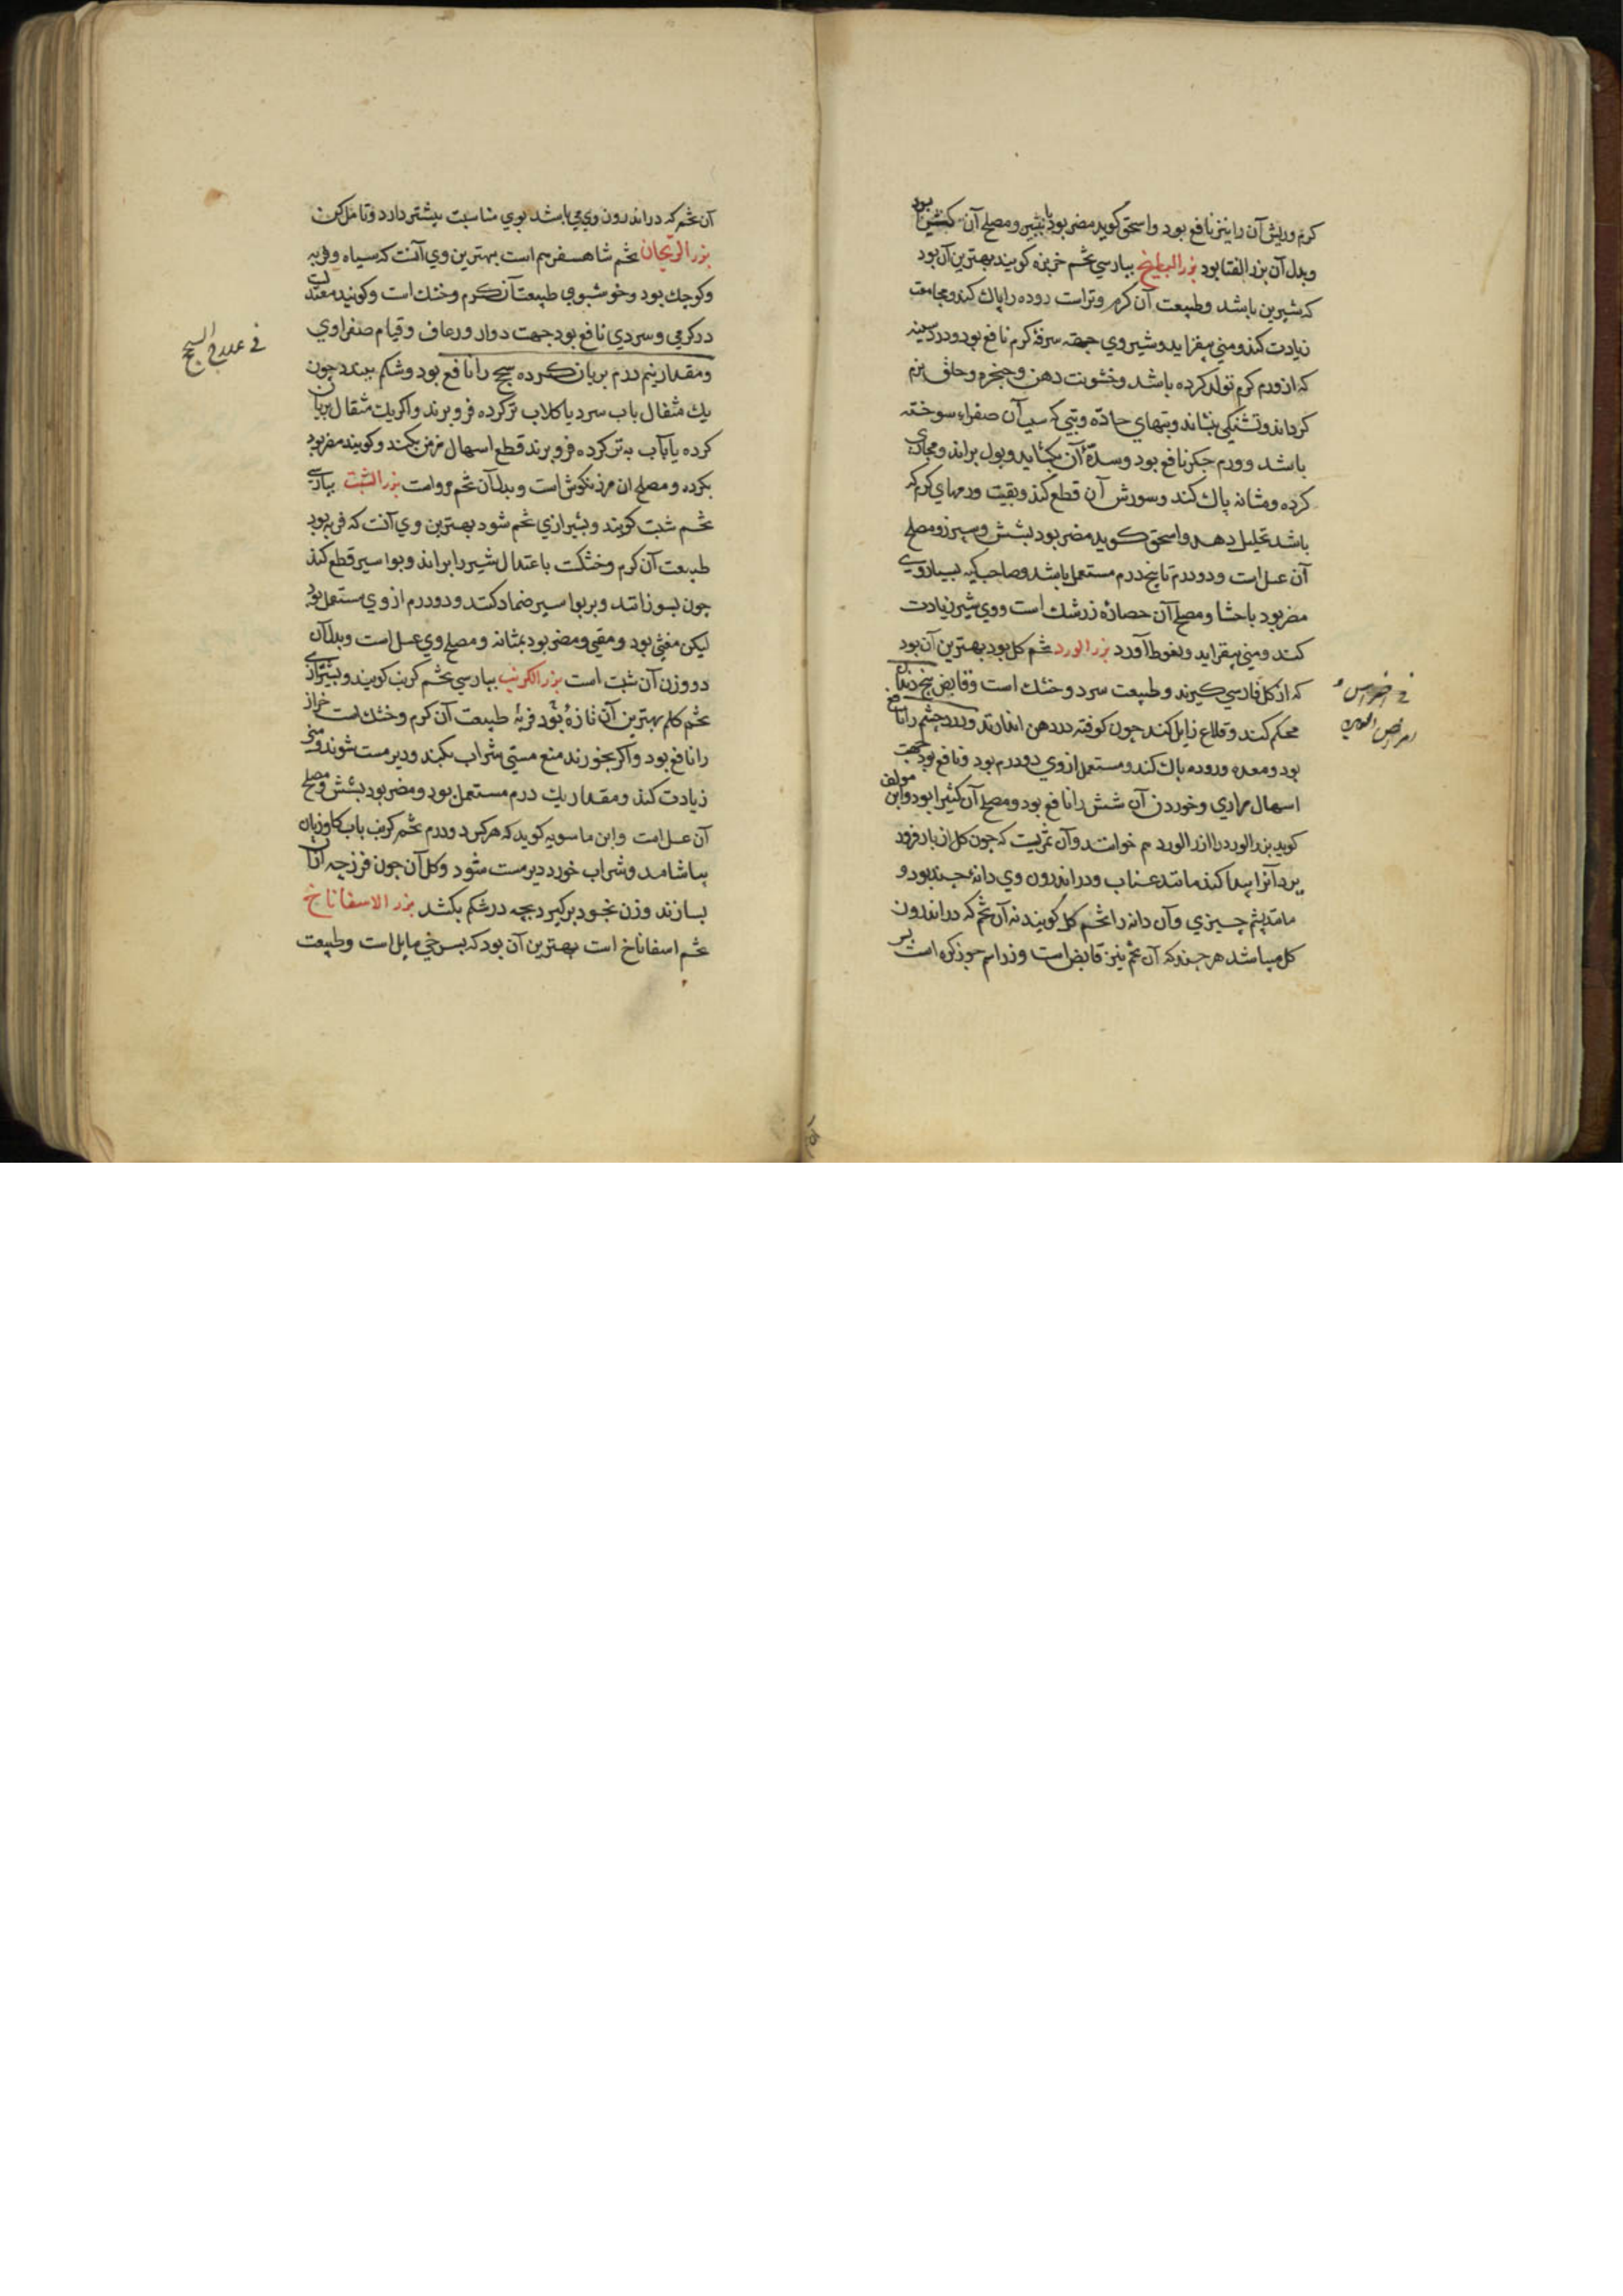 کرم وریش آن را نیز نافع بود واسحق کوید مضر بود بشپر ومصلح آن کشنیز بود
وبدل آن بزر القثا بود بزر البطیخ بپارسی تخم خربزه کویند بهترین آن بود
که شیرین باشد وطبیعت آن کرم وتر است روده را پاک کند ومجامعت
زیادت کند ومنی بیفزاید وشیر وی جهته سرفهٔ کرم نافع بود ودرد سینه
که از ورم کرم تولد کرده باشد وخشونت دهن وحنجره وحلق نرم
کرداند وتشنکی بنشاند وتبهای حادّه وتبی که سبب آن صفراء سوخته
باشد وورم جکر نافع بود وسدّهٔ آن بکشاید وبول براند ومجاری
کرده ومثانه پاک کند وسوزش آن قطع کند وبقیت ورمهای کرم که
باشد تحلیل دهد واسحق کوید مضر بود بشش وسپرز ومصلح
آن عسل است ودو درم تا پنج درم مستعمل باشد وصاحب کیه بسیار وی
مضر بود باحشا ومصلح آن عصارهٔ زرشک است ووی شیر زیادت
کند ومنی بیفزاید ونعوظ آورد بزر الورد تخم کل بود بهترین آن بود
که از کل فارسی کیرند وطبیعت سرد وخشک است وقابض بیخ دندان
محکم کند وقلاع زایل کند چون کوفته در دهن اندازند ودرد چشم را نافع
بود ومعده وروده پاک کند ومستعمل از وی دو درم بود ونافع بود جهت
اسهال مراری وخوردن آن شش را نافع بود ومصلح آن کثیرا بود وابن مولف
کوید بزر الورد را ازر الورد هم خوانند وآن ثمریست که چون کل از بار فرود
یرد آنرا پیدا کند مانند عناب ودر اندرون وی دانهٔ چند بود و
مانند پشم چیزی وآن دانه را تخم کل کویند نه آن تخم که در اندرون
کل میباشد هر چند که آن تخم نیز قابض است وزر اسم جوز کره است بر
فی اضراس و
امراض العین
آن تخم که در اندرون وی می باشد بوی مناسبت بیشتر دارد وتامل کن
بزر الریحان تخم شاهسفرم است بهترین وی آنست که سیاه وفربه
وکوچک بود وخوشبوی طبیعت آن کرم وخشک است وکویند معتدل
در کرمی وسردی نافع بود جهت دوار ورعاف وقیام صفراوی
ومقدار نیم درم بریان کرده سحج را نافع بود وشکم ببندد چون
یک مثقال باب سرد یا کلاب تر کرده فرو برند واکر یک مثقال بریان
کرده یا بآب به تر کرده فرو برند قطع اسهال مزمن بکند وکویند مضر بود
بکرده ومصلح ان مرزنکوش است وبدل آن تخم مرو است بزر الشبت بپارسی
تخم شبت کویند وبشیرازی تخم شود بهترین وی آنست که فربه بود
طبیعت آن کرم وخشکست باعتدال شیر را براند وبواسیر قطع کند
چون بسوزانند وبر بواسیر ضماد کنند ودو درم از وی مستعمل بود
لیکن مغثی بود ومقیی ومضر بود بمثانه ومصلح وی عسل است وبدل آن
دو وزن آن شبت است بزر الکرنب بپارسی تخم کرنب کویند وبشیرازی
تخم کلم بهترین آن تازهٔ بود فربهٔ طبیعت آن کرم وخشک است خراز
را نافع بود واکر بخورند منع مستی شراب بکند ودیر مست شوند ومنی
زیادت کند ومقدار یک درم مستعمل بود ومضر بود بشش ومصلح
آن عسل است وابن ماسویه کوید که هر کس دو درم تخم کرنب باب کاوزبان
بیاشامد وشراب خورد دیر مست شود وکل آن چون فرزجه ازان
بسازند وزن بخود بر کیرد بچه در شکم بکشد بزر الاسفاناخ
تخم اسفاناخ است بهترین آن بود که بسرخی مایل است وطبیعت
فی علاج السحج